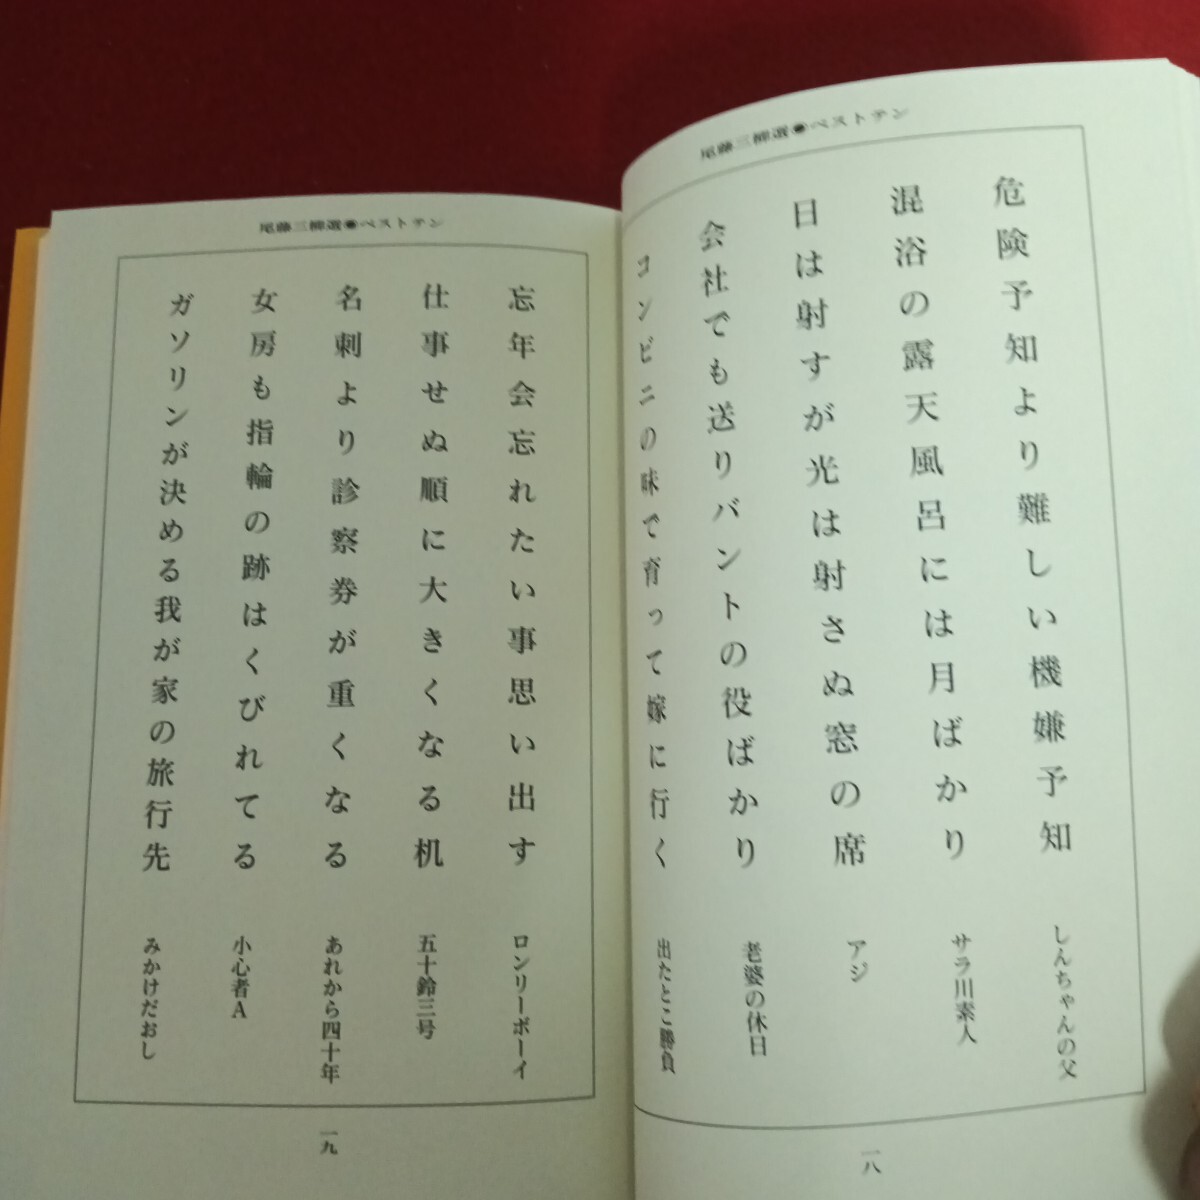 尾藤三柳選●ベストテン
危険予知より難しい機嫌予知
しんちゃんの父
混浴の露天風呂には月ばかり
サラ川素人
日は射すが光は射さぬ窓の席
アジ
会社でも送りバントの役ばかり
老婆の休日
コンビニの味で育って嫁に行く
出たとこ勝負
一八
尾藤三柳選●ベストテン
忘年会忘れたい事思い出す
ロンリーボーイ
仕事せぬ順に大きくなる机
五十鈴三号
名刺より診察券が重くなる
あれから四十年
女房も指輪の跡はくびれてる
小心者A
ガソリンが決める我が家の旅行先
みかけだおし
一九